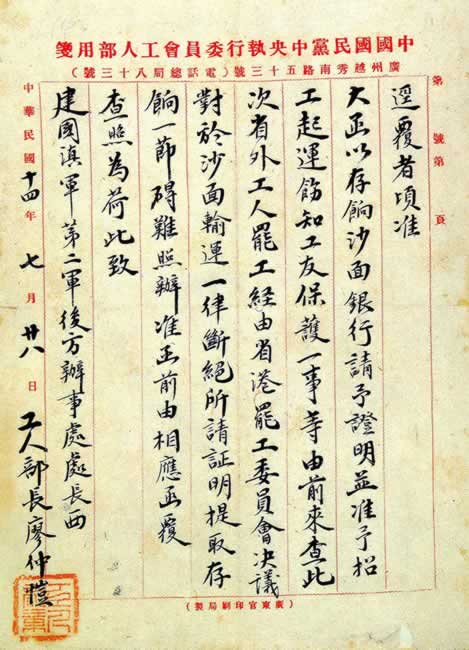 中國國民黨中央執行委員會工人部用箋
（廣州越秀南路五十三號）（電話總局八十三號）
第 號第 頁
逕覆者頃准
大函以存餉沙面銀行請予證明並准予招
工起運飭知工友保護一事等由前來查此
次省外工人罷工經由省港罷工委員會決議
對於沙面輸運一律斷絕所請証明提取存
餉一節碍難照辦准函前由相應函覆
查照為荷此致
建國滇軍第二軍後方辦事處處長西
中華民國十四年七月廿八日 工人部長廖仲愷
（廣東官印刷局製）